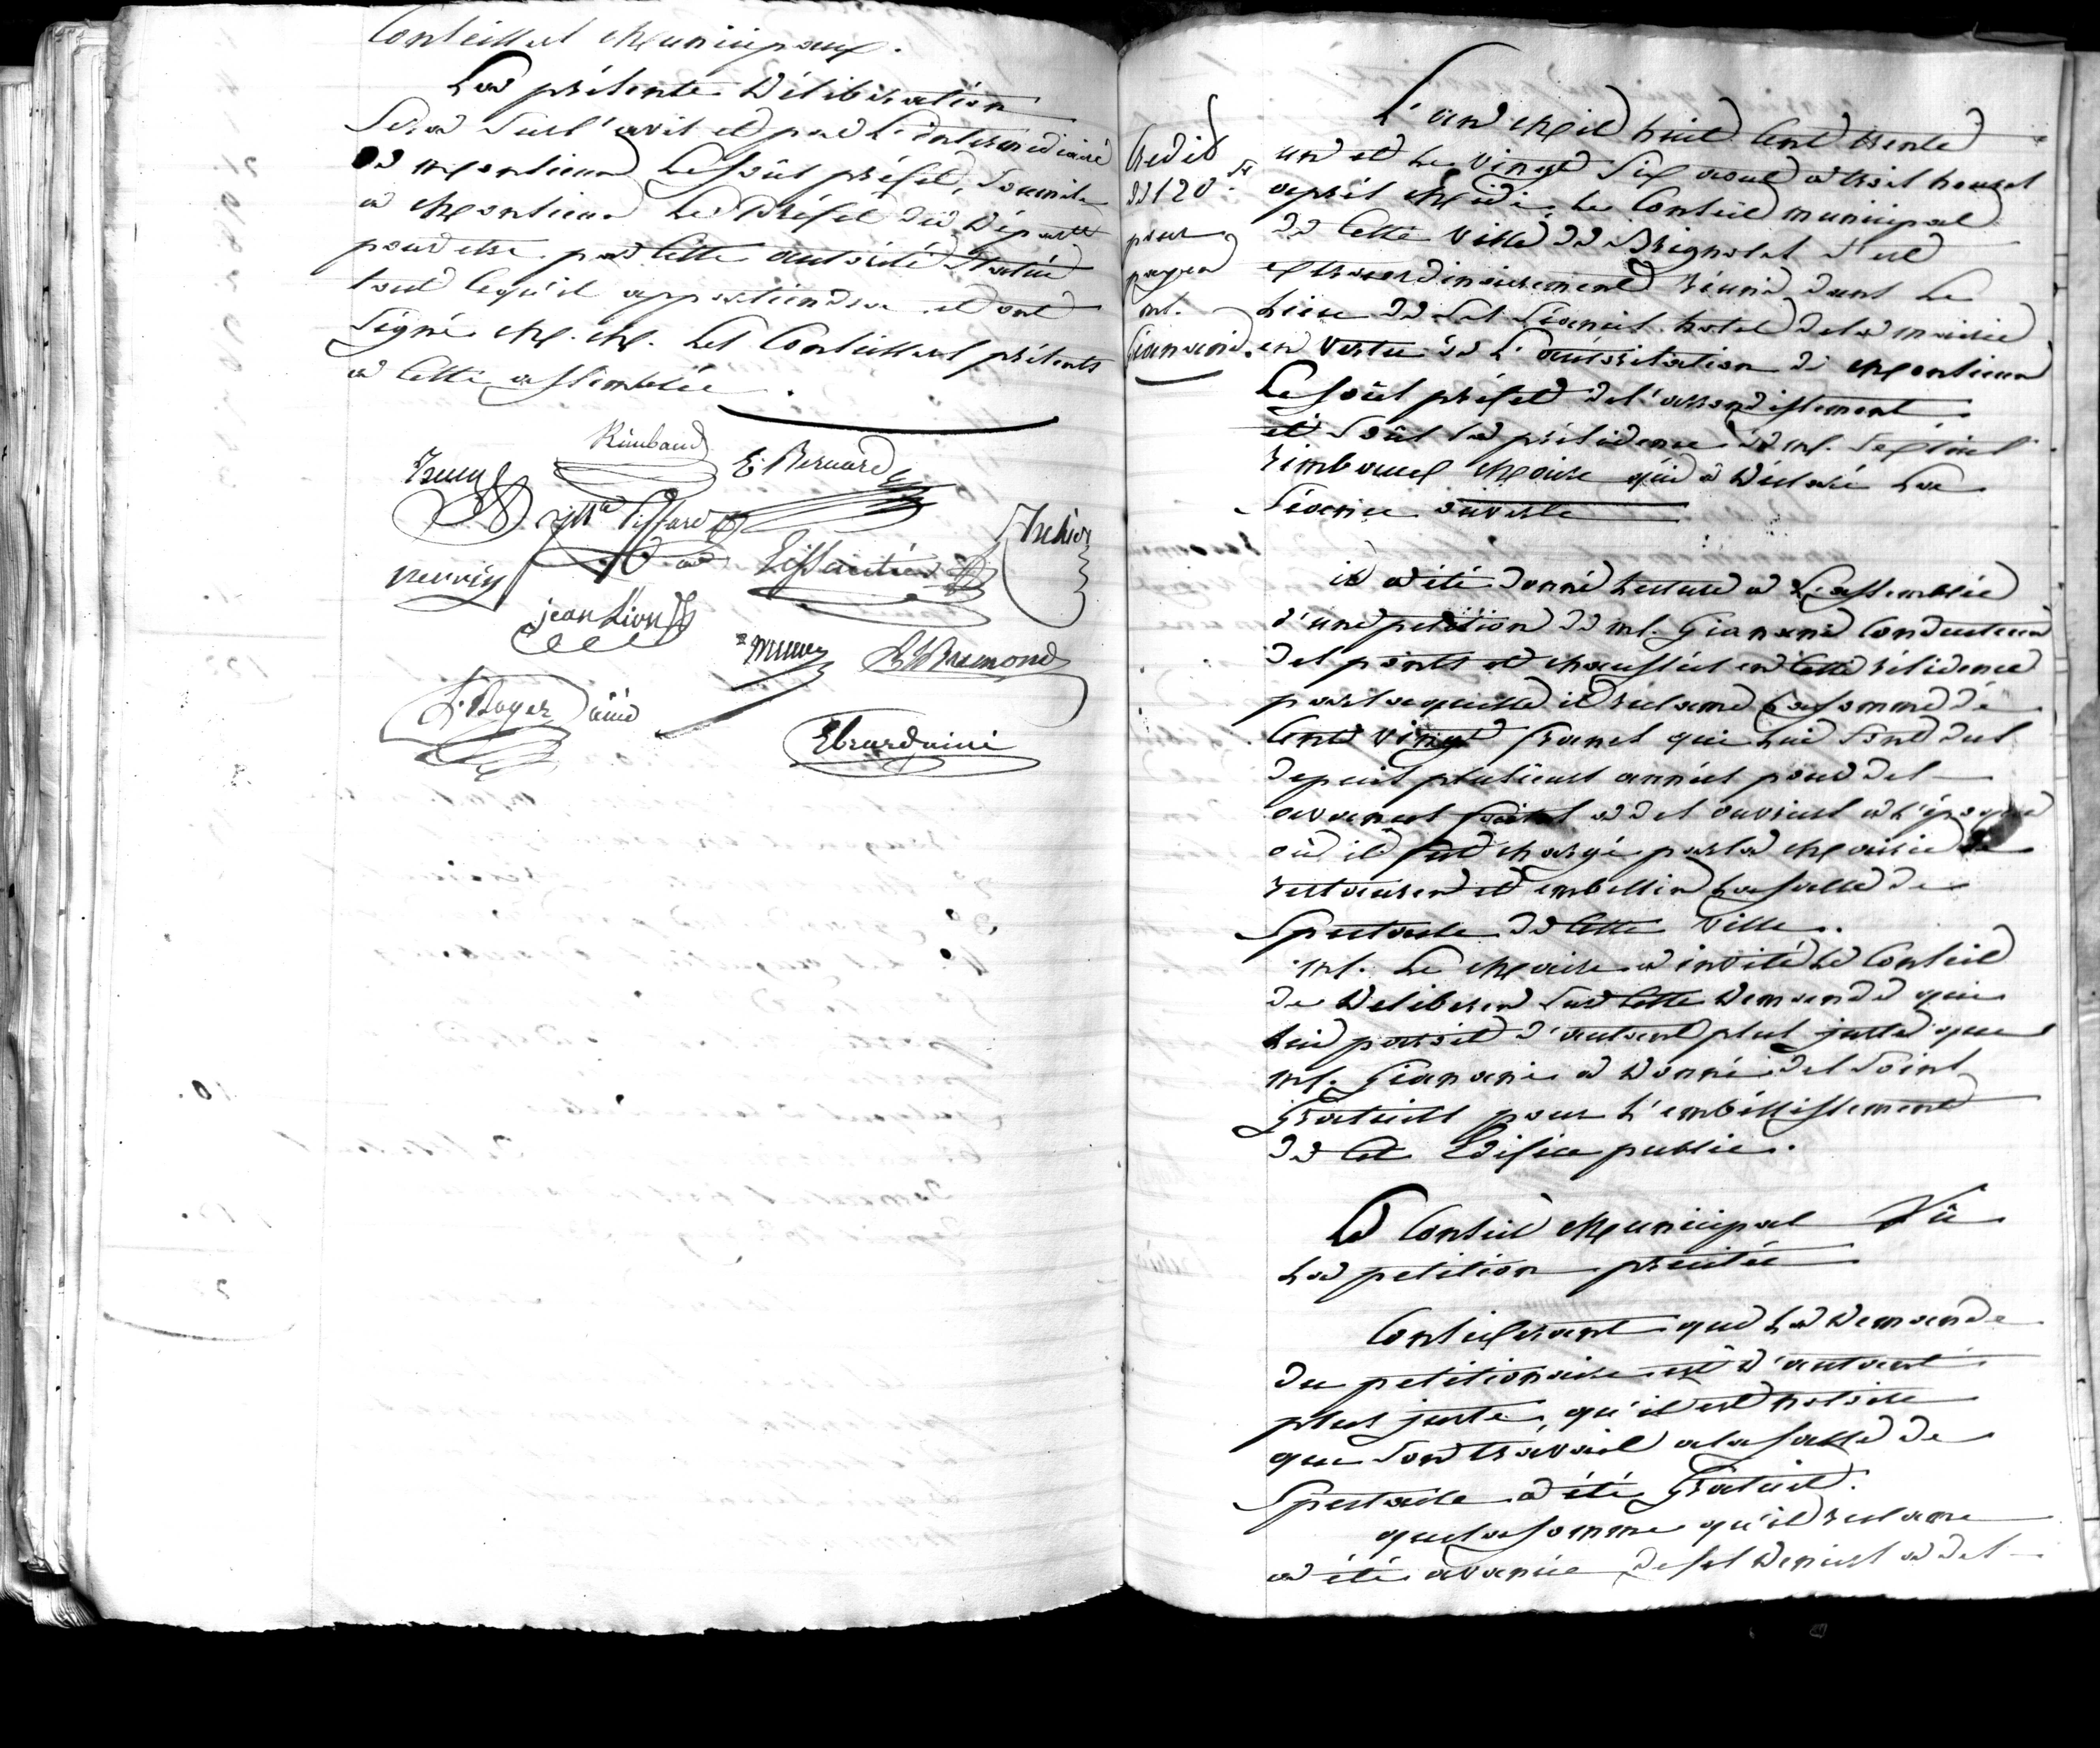 Conseillers Municipaux.
La présente Délibération
Sera Sur l'avis et par L'intermédiaire
de monsieur Le Sous préfet, Soumise
a Monsieur Le Préfet du Départt
pour etre par Cette autorité Statué
tout Cequ'il appartiendra et ont
Signé M. M. Les Conseillers présents
a Cette assemblée.
Rimbaud
E. Bernard
jean Lion
Bremond
F. Boyer ainé
Ebrard ainé
Credit
de 120 fr
pour
payer
mr.
Gianani.
L'an Mil huit Cent trente
un et Le vingt Six aout a trois heures
après Midi, Le Conseil municipal
de Cette ville de Brignoles s'est
extraordinairement réuni dans Le
Lieu de Ses Séances hotel dela mairie
en vertu de L'autorisation de Monsieur
Le Sous préfet del'arrondissement
et Sous La présidence de mr.
rimbaud Maire qui a Déclaré La
Séance ouverte
il a été donné Lecture a L'assemblée
d'une petition de mr. Gianani Conducteur
des ponts et chaussées en Cette résidence
par laquelle il reclame La somme de
Cent vingt francs qui Lui Sont dus
depuis plusieurs années pour des
avances faites a des ouvriers a l'époque
où il fut chargé par la Mairie de
restaurer et embellir La salle de
Spectacle de Cette Ville.
mr. Le Maire a invité Le Conseil
de Deliberer Sur Cette Demande qui
Lui parait d'autant plus juste que
mr. Gianani a Donné des Soins
Gratuits pour L'embellissement
de Cet Edifice public.
Le Conseil Municipal Vû
La petition précitée
Considerant que La Demande
du petitionaire est d'autant
plus juste, qu'il est notoire
que Son travail a la salle de
Spectacle a été Gratuit.
que la somme qu'il reclame
a été avancée de ses Deniers a des